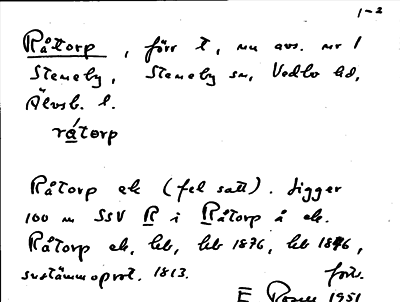 1-2
Råtorp, förr t, nu avs. nr 1
Steneby, Steneby sn, Vedbo hd,
Älvsb. l.
råtorp
Råtorp ek (fel satt). Ligger
100 m SSV R i Råtorp å ek.
Råtorp ek, hb, hb 1876, hb 1846,
sustämmoprot. 1813. forts.
E 1951